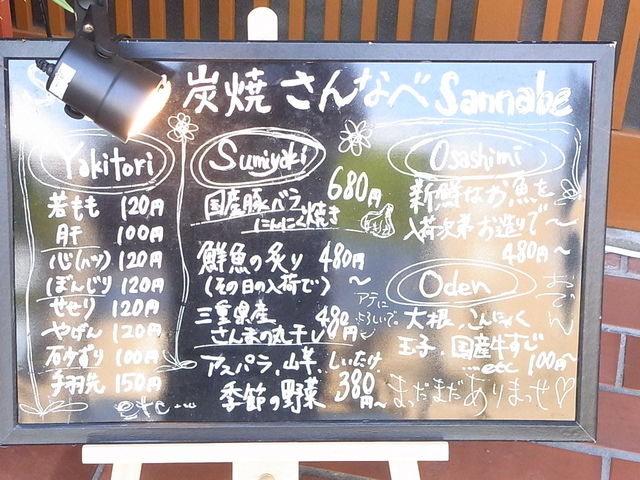 炭焼 さんなべ Sannabe
Yakitori
若もも 120円
肝 100円
心(ハツ) 120円
ぼんじり 120円
せせり 120円
やげん 120円
石ケずり 100円
手羽先 150円
etc...
Sumiyaki
国産豚バラ 680円
にんにく焼き
鮮魚の炙り 480円
(その日の入荷で) 〜
三重県産 480円
さんまの丸干し
アテに
よろしいで。
アスパラ、山芋、しいたけ
季節の野菜 380円〜
Osashimi
新鮮なお魚を
入荷次第お造りで〜
480円〜
Oden
おでん
大根、こんにゃく
玉子、国産牛すじ
...etc 100円〜
まだまだありまっせ♡